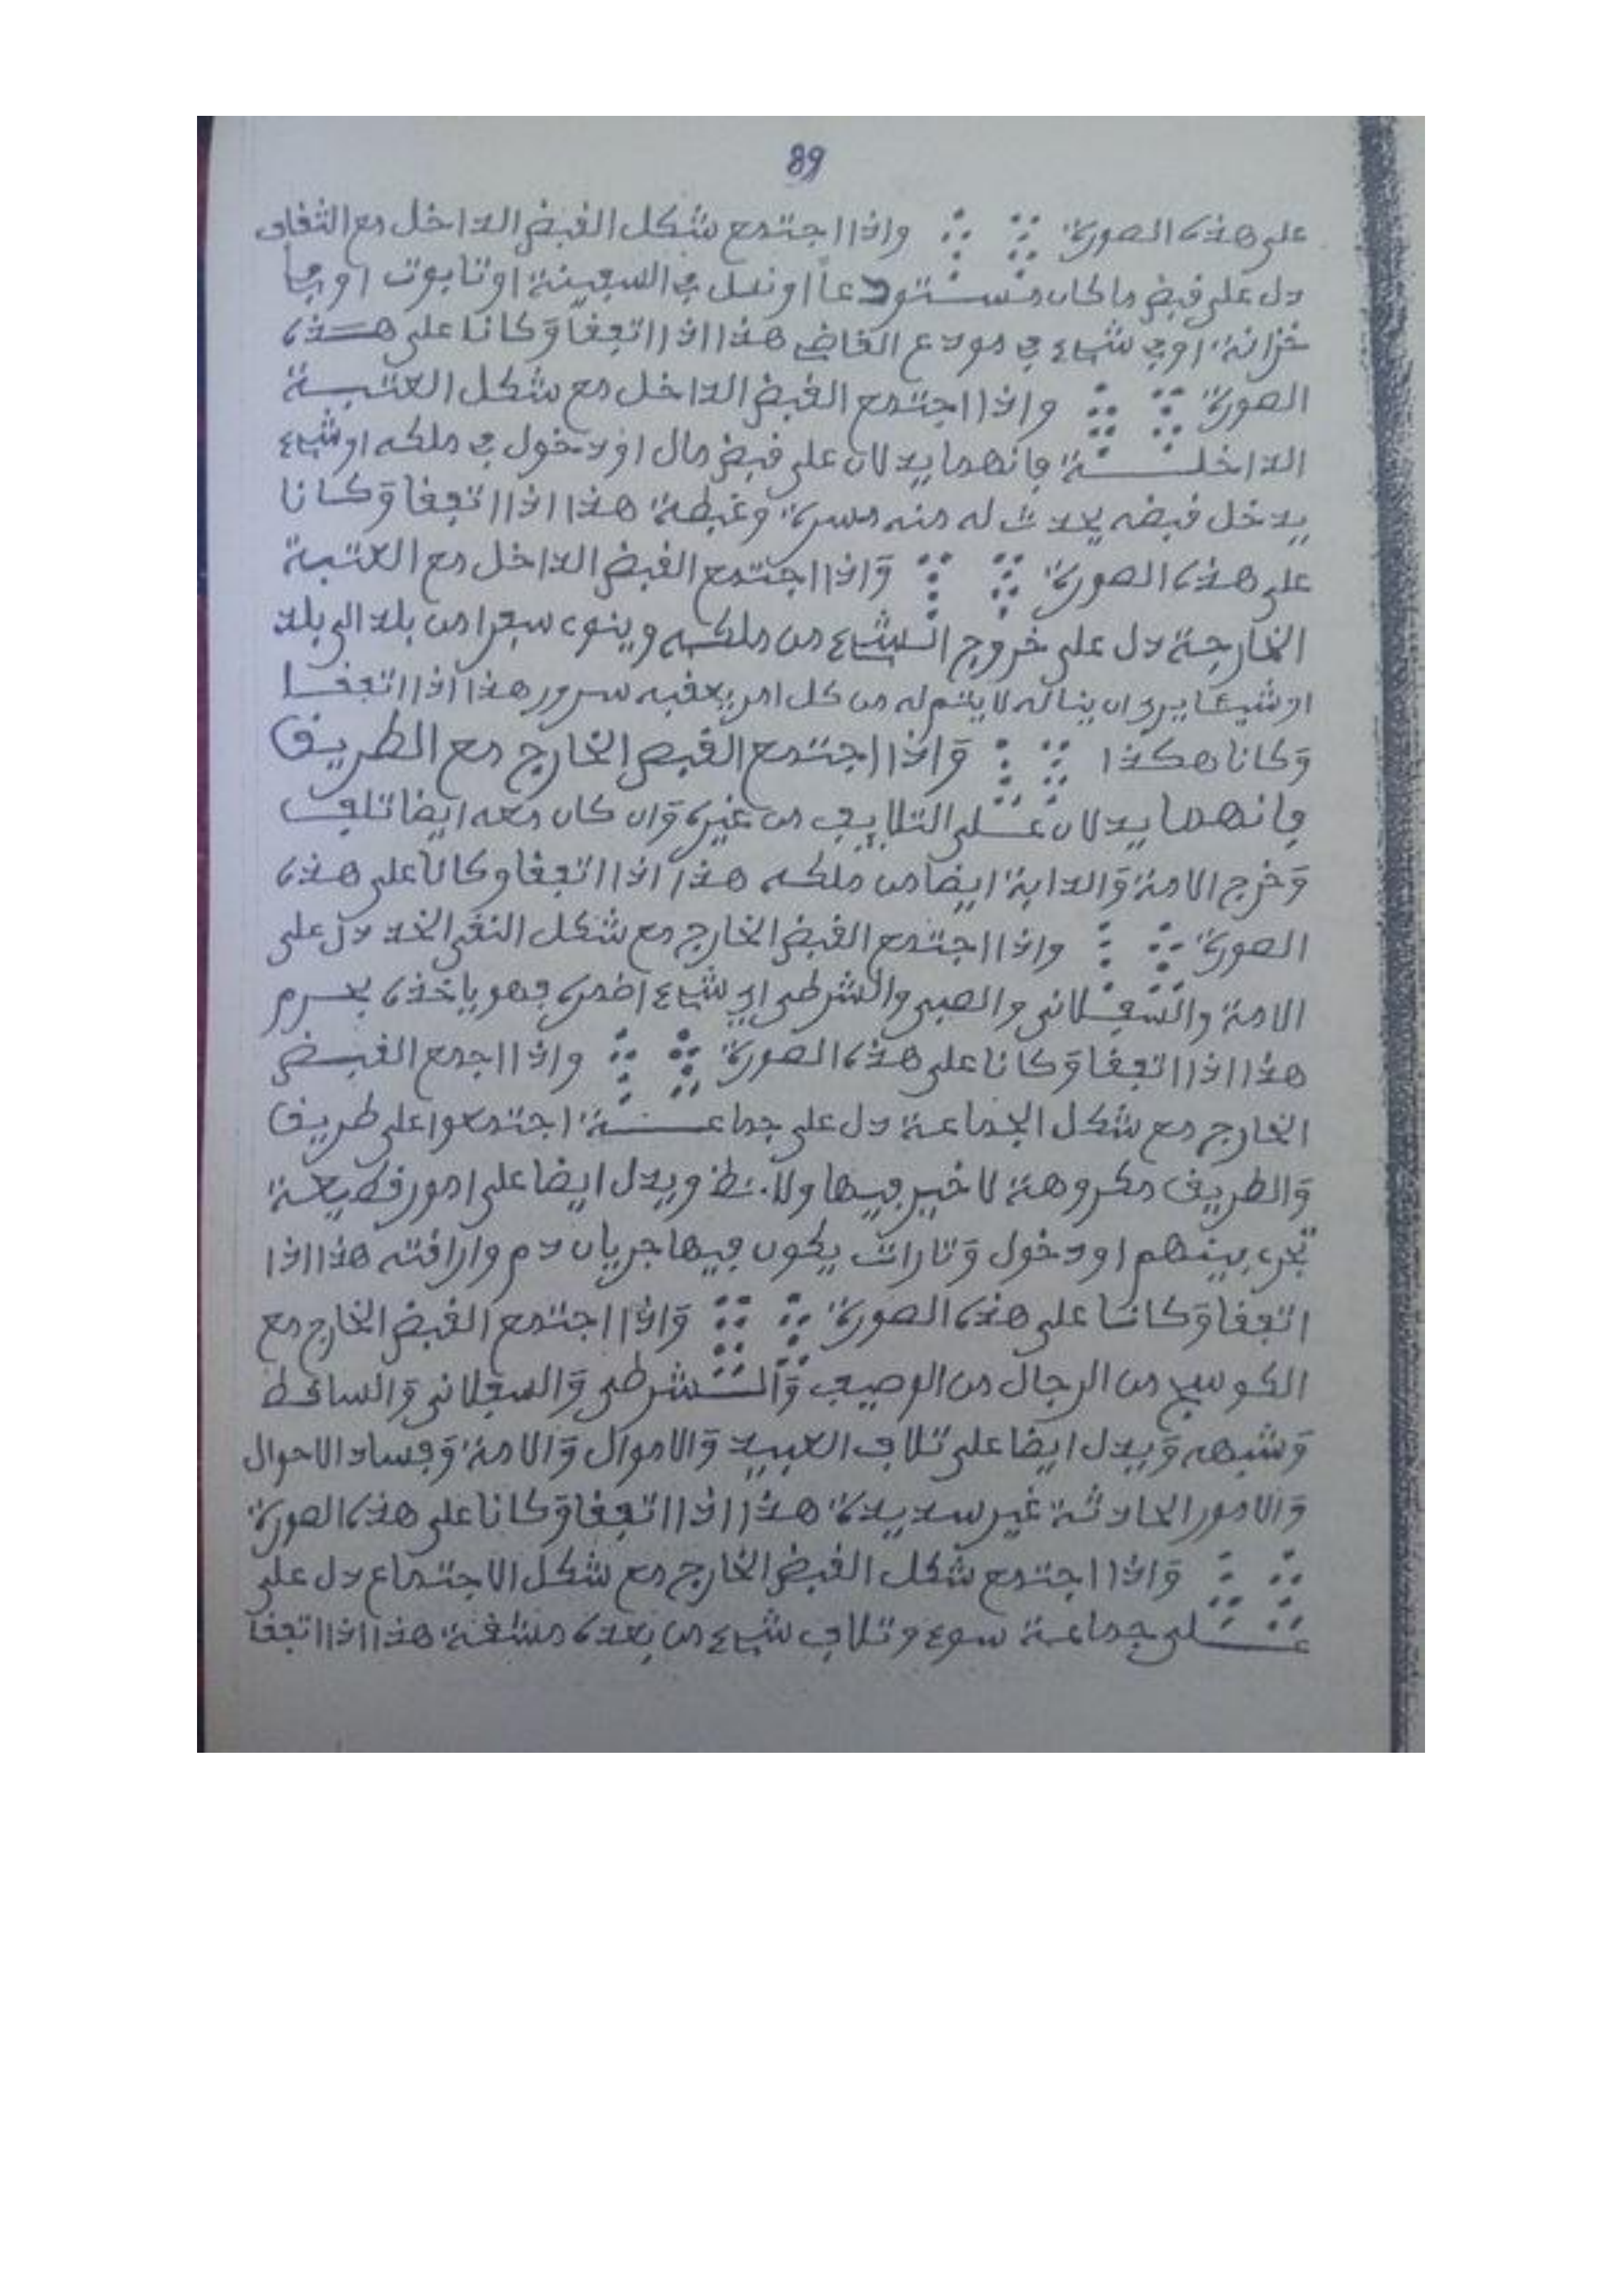 89
على هذه الصورة واذا اجتمع شكل القبض الداخل مع الثقاف
دل على قبض ما كان مستودعا او نمل في السفينة او تابوت او في
خزانة او في شيء في مودع القاضي هذا اذا اتفقا وكانا على هذه
الصورة واذا اجتمع القبض الداخل مع شكل العتبة
الداخلة فانهما يدلان على قبض مال او دخول في ملكه او شيء
يدخل قبضه يحدث له منه مسرة وغبطة هذا اذا اتفقا وكانا
على هذه الصورة وَاذا اجتمع القبض الداخل مع العتبة
الخارجة دل على خروج الشيء من ملكه وينوي سفرا من بلد الى بلد
او شيئا يريد ان يناله لا يتم له من كل امر يعقبه سرور هذا اذا اتفقا
وَكانا هكذا وَاذا اجتمع القبض الخارج مع الطريق
فانهما يدلان على التلاييف من غيره وَان كان معه ايضا تلف
وَخرج الامة وَالدابة ايضا من ملكه هذا اذا اتفقا وكانا على هذه
الصورة واذا اجتمع القبض الخارج مع شكل النقي الخد دل على
الامة والسفلاني والصبي والشرطي اي شيء اضمره فهو ياخذه بحرم
هذا اذا اتفقا وَكانا على هذه الصورة واذا اجمع القبض
الخارج مع شكل الجماعة دل على جماعة اجتمعوا على طريق
وَالطريق مكروهة لا خير فيها ولا ويدل ايضا على امور فضيحة
تجري بينهم او دخول وَتارات يكون فيها جريان دم وارافته هذا اذا
اتفقا وَكانا على هذه الصورة وَاذا اجتمع القبض الخارج مع
الكوسج من الرجال من الوصيف وَالشرطي وَالسفلاني وَالساقط
وَشبهه وَيدل ايضا على تلاف العبيد وَالاموال وَالامة وَفساد الاحوال
وَالامور الحادثة غير سديدة هذا اذا اتفقا وَكانا على هذه الصورة
وَاذا اجتمع شكل القبض الخارج مع شكل الاجتماع دل على
على جماعة سوء وتلاف شيء من بعده مشقة هذا اذا اتفقا